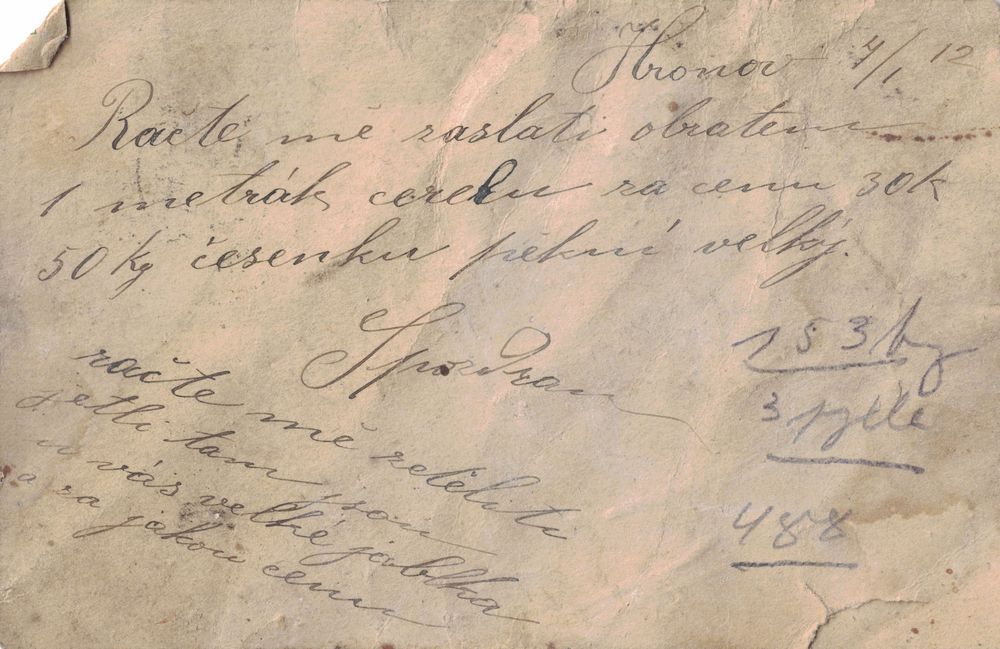 Hronov 4/1 12
Račte mě zaslati obratem
1 metrák cerelu za cenu 30k
50 kg česenku pěkní velký.
Spozdrav
račte mě zdělitu
jetli tam jsou
u vás velké jablka
a za jakou cenu
153 kg
3 pytle
488